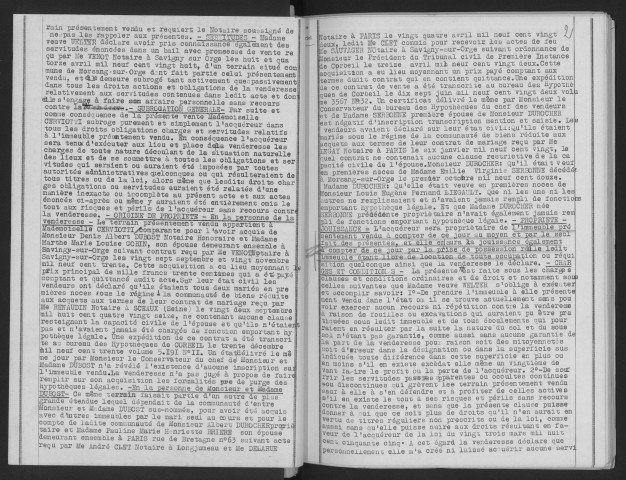 rain présentement vendu et requiert le Notaire soussigné de
ne pas les rappeler aux présentes. - SERVITUDES - Madame
veuve déclare avoir pris connaissance également des
servitudes énoncées dans un bail avec promesse de vente re
çu par Me VENOT Notaire à Savigny sur Orge les huit et qua
torze avril mil neuf cent vingt huit, d'un terrain situé com
mune de Morsang-sur-Orge dont fait partie celui présentement
vendu, et demeure subrogé tant activement que passivement
dans tous les droits actions et obligations de la venderesse
relativement aux servitudes contenues dans ledit acte et dont
elle s'engage à faire son affaire personnelle sans recours
contre - SUBROGATION GENERALE - Par suite et
comme conséquence de la présente vente Mademoiselle
CERVIOTTI subroge purement et simplement l'acquéreur dans
tous les droits obligations charges et servitudes relatifs
à l'immeuble présentement vendu. En conséquence l'acquéreur
sera tenu d'exécuter aux lieu et place de la venderesse les
charges de toute nature découlant de la situation naturelle
des lieux et de se soumettre à toutes les obligations et ser
vitudes qui seraient ou auraient été imposées par toutes
autorités administratives quelconques ou qui résulteraient de
tous titres ou de la loi, alors même que lesdits droits char
ges obligations ou servitudes auraient été relatés d'une
manière inexacte ou incomplète au présent acte et aux actes
énoncés ci-après ou même y auraient été entièrement omis le
tout aux risques et périls de l'acquéreur sans recours contre
la venderesse. - ORIGINE DE PROPRIETE - En la personne de la
venderesse - Le terrain présentement vendu appartient à
Mademoiselle CERVIOTTI, comparante pour l'avoir acquis de
Monsieur Denis Albert DUBOST Notaire Honoraire et Madame
Marthe Marie Louise son épouse demeurant ensemble à
Savigny-sur-Orge suivant contrat reçu par Me VENOT Notaire à
Savigny-sur-Orge les vingt sept septembre et vingt novembre
mil neuf cent trente. Cette acquisition a eu lieu moyennant le
prix principal de mille francs trente centimes qui a été payé
comptant et quittancé audit acte. Sur leur état civil les
vendeurs ont déclaré qu'ils étaient tous deux mariés en pre
mières noces sous le régime de la communauté de biens réduite
aux acquets aux termes de leur contrat de mariage reçu par
Me RENAUDIN Notaire à SCEAUX (Seine) le vingt deux septembre
mil huit cent quatre vingt seize, ne contenant aucune clause
restreignant la capacité civile de l'épouse et qu'ils n'étaient
pas et n'avaient jamais été chargés de fonction emportant hy
pothèque légale. Une expédition de ce contrat a été transcri
te au bureau des Hypothèques de CORBEIL le trente décembre
mil neuf cent trente volume 5.191 N°11. Un état délivré le mê
me jour par Monsieur le Conservateur du chef de Monsieur et
Madame DUBOST n'a révélé l'existence d'aucune inscription sur
l'immeuble vendu. La venderesse n'a pas jugé à propos de faire
remplir sur son acquisition les formalités de purge des
hypothèques légales. - En la personne de Monsieur et Madame
DUBOST - Ce même terrain faisait partie d'un autre de plus
grande étendue lequel dépendait de la communauté d'entre
Monsieur et Madame DUBOST sus-nommés, pour avoir été acquis
avec d'autres immeubles par le mari seul au cours et pour le
compte de ladite communauté de Monsieur Albert DUROCHER proprié
taire et Madame Pauline Marie Henriette son épouse
demeurant ensemble à PARIS rue de Bretagne n°63 suivant acte
reçu par Me André CLET Notaire à Longjumeau et Me DELARUE
21
Notaire à PARIS le vingt quatre avril mil neuf cent vingt
deux, ledit Me CLET commis pour recevoir les actes de feu
Me Notaire à Savigny-sur-Orge suivant ordonnance de
Monsieur le Président du Tribunal civil de Première Instance
de Corbeil le treize avril mil neuf cent vingt deux. Cette
acquisition a eu lieu moyennant un prix payé comptant aux
termes dudit contrat qui en contient quittance. Une expédition
de ce contrat de vente a été transcrite au bureau des Hypothè
ques de Corbeil le dix sept juin mil neuf cent vingt deux volu
me 3507 N°32. Un certificat délivré le même par Monsieur le
Conservateur du bureau des Hypothèques du chef des vendeurs
et de Madame précédente épouse de Monsieur DUROCHER
est négatif d'inscription transcription mention et saisie. Les
vendeurs avaient déclaré sur leur état civil qu'ils étaient
mariés sous le régime de la communauté de biens réduite aux
acquets aux termes de leur contrat de mariage reçu par Me
LEGAY Notaire à PARIS le six janvier mil neuf cent vingt, le
quel contrat ne contenait aucune clause restrictive de la ca
pacité civile de l'épouse. Monsieur DUROCHER: Qu'il était veuf
en premières noces de Madame Emilie Virginie décédée
à Morsang-sur-Orge le premier octobre mil neuf cent douze.
Madame DUROCHER: qu'elle était veuve en premières noces de
Monsieur Louis Eugène Fernand Que ni les uns ni les
autres ne remplissaient et n'avaient jamais rempli de fonctions
emportant hypothèque légale. Et que Madame DUROCHER née
précédente propriétaire n'avait également jamais rem
pli de fonctions emportant hypothèque légale. - PROPRIETE -
JOUISSANCE - L'acquéreur sera propriétaire de l'immeuble pré
sentement vendu à compter de ce jour au moyen et par le seul
fait des présentes, et elle entrera en jouissance également
à compter de ce jour par la prise de possession réelle ledit
immeuble étant libre de location de toute occupation ou réqui
sition quelconque ainsi que la venderesse le déclare. - CHAR
GES ET CONDITIONS - La présente est faite sous les charges
clauses et conditions ordinaires et de droit et notamment sous
celles suivantes que Madame veuve s'oblige à exécuter
et accomplir savoir: 1°- De prendre l'immeuble à elle présente
ment vendu dans l'état où il se trouve actuellement sans pou
voir exercer aucun recours ni répétition contre la venderesse
à raison de fouilles ou excavations qui auraient pu être pra
tiquées sous ledit immeuble et de tous éboulements qui pour
raient en résulter par la suite la nature du sol et du sous
sol n'étant pas garantie, comme aussi sans aucune garantie de
la part de la venderesse pour raison soit des mitoyennetés
soit d'erreur dans la désignation ou dans la superficie sus
indiquée toute différence dans cette superficie en plus ou
en moins s'il en existe excédât elle même un vingtième de
vant faire le profit ou la perte de l'acquéreur. 2°- De souf
frir les servitudes passives apparentes ou occultes continues
ou discontinues qui grèvent le terrain présentement vendu
sauf à elle à s'en défendre et à profiter de celles actives
s'il en existe le tout à ses risques et périls sans recours
contre la venderesse, et sans que la présente clause puisse
donner à qui que ce soit plus de droits qu'il n'en aurait en
vertu de titres réguliers non prescrits ou de la loi, comme
aussi sans qu'elle puisse nuire aux droits résultant en fa
veur de l'acquéreur de la loi du vingt trois mars mil huit
cent cinquante cinq. A cet égard la venderesse déclare que
personnellement elle n'a créé ni laissé acquérir aucune servi